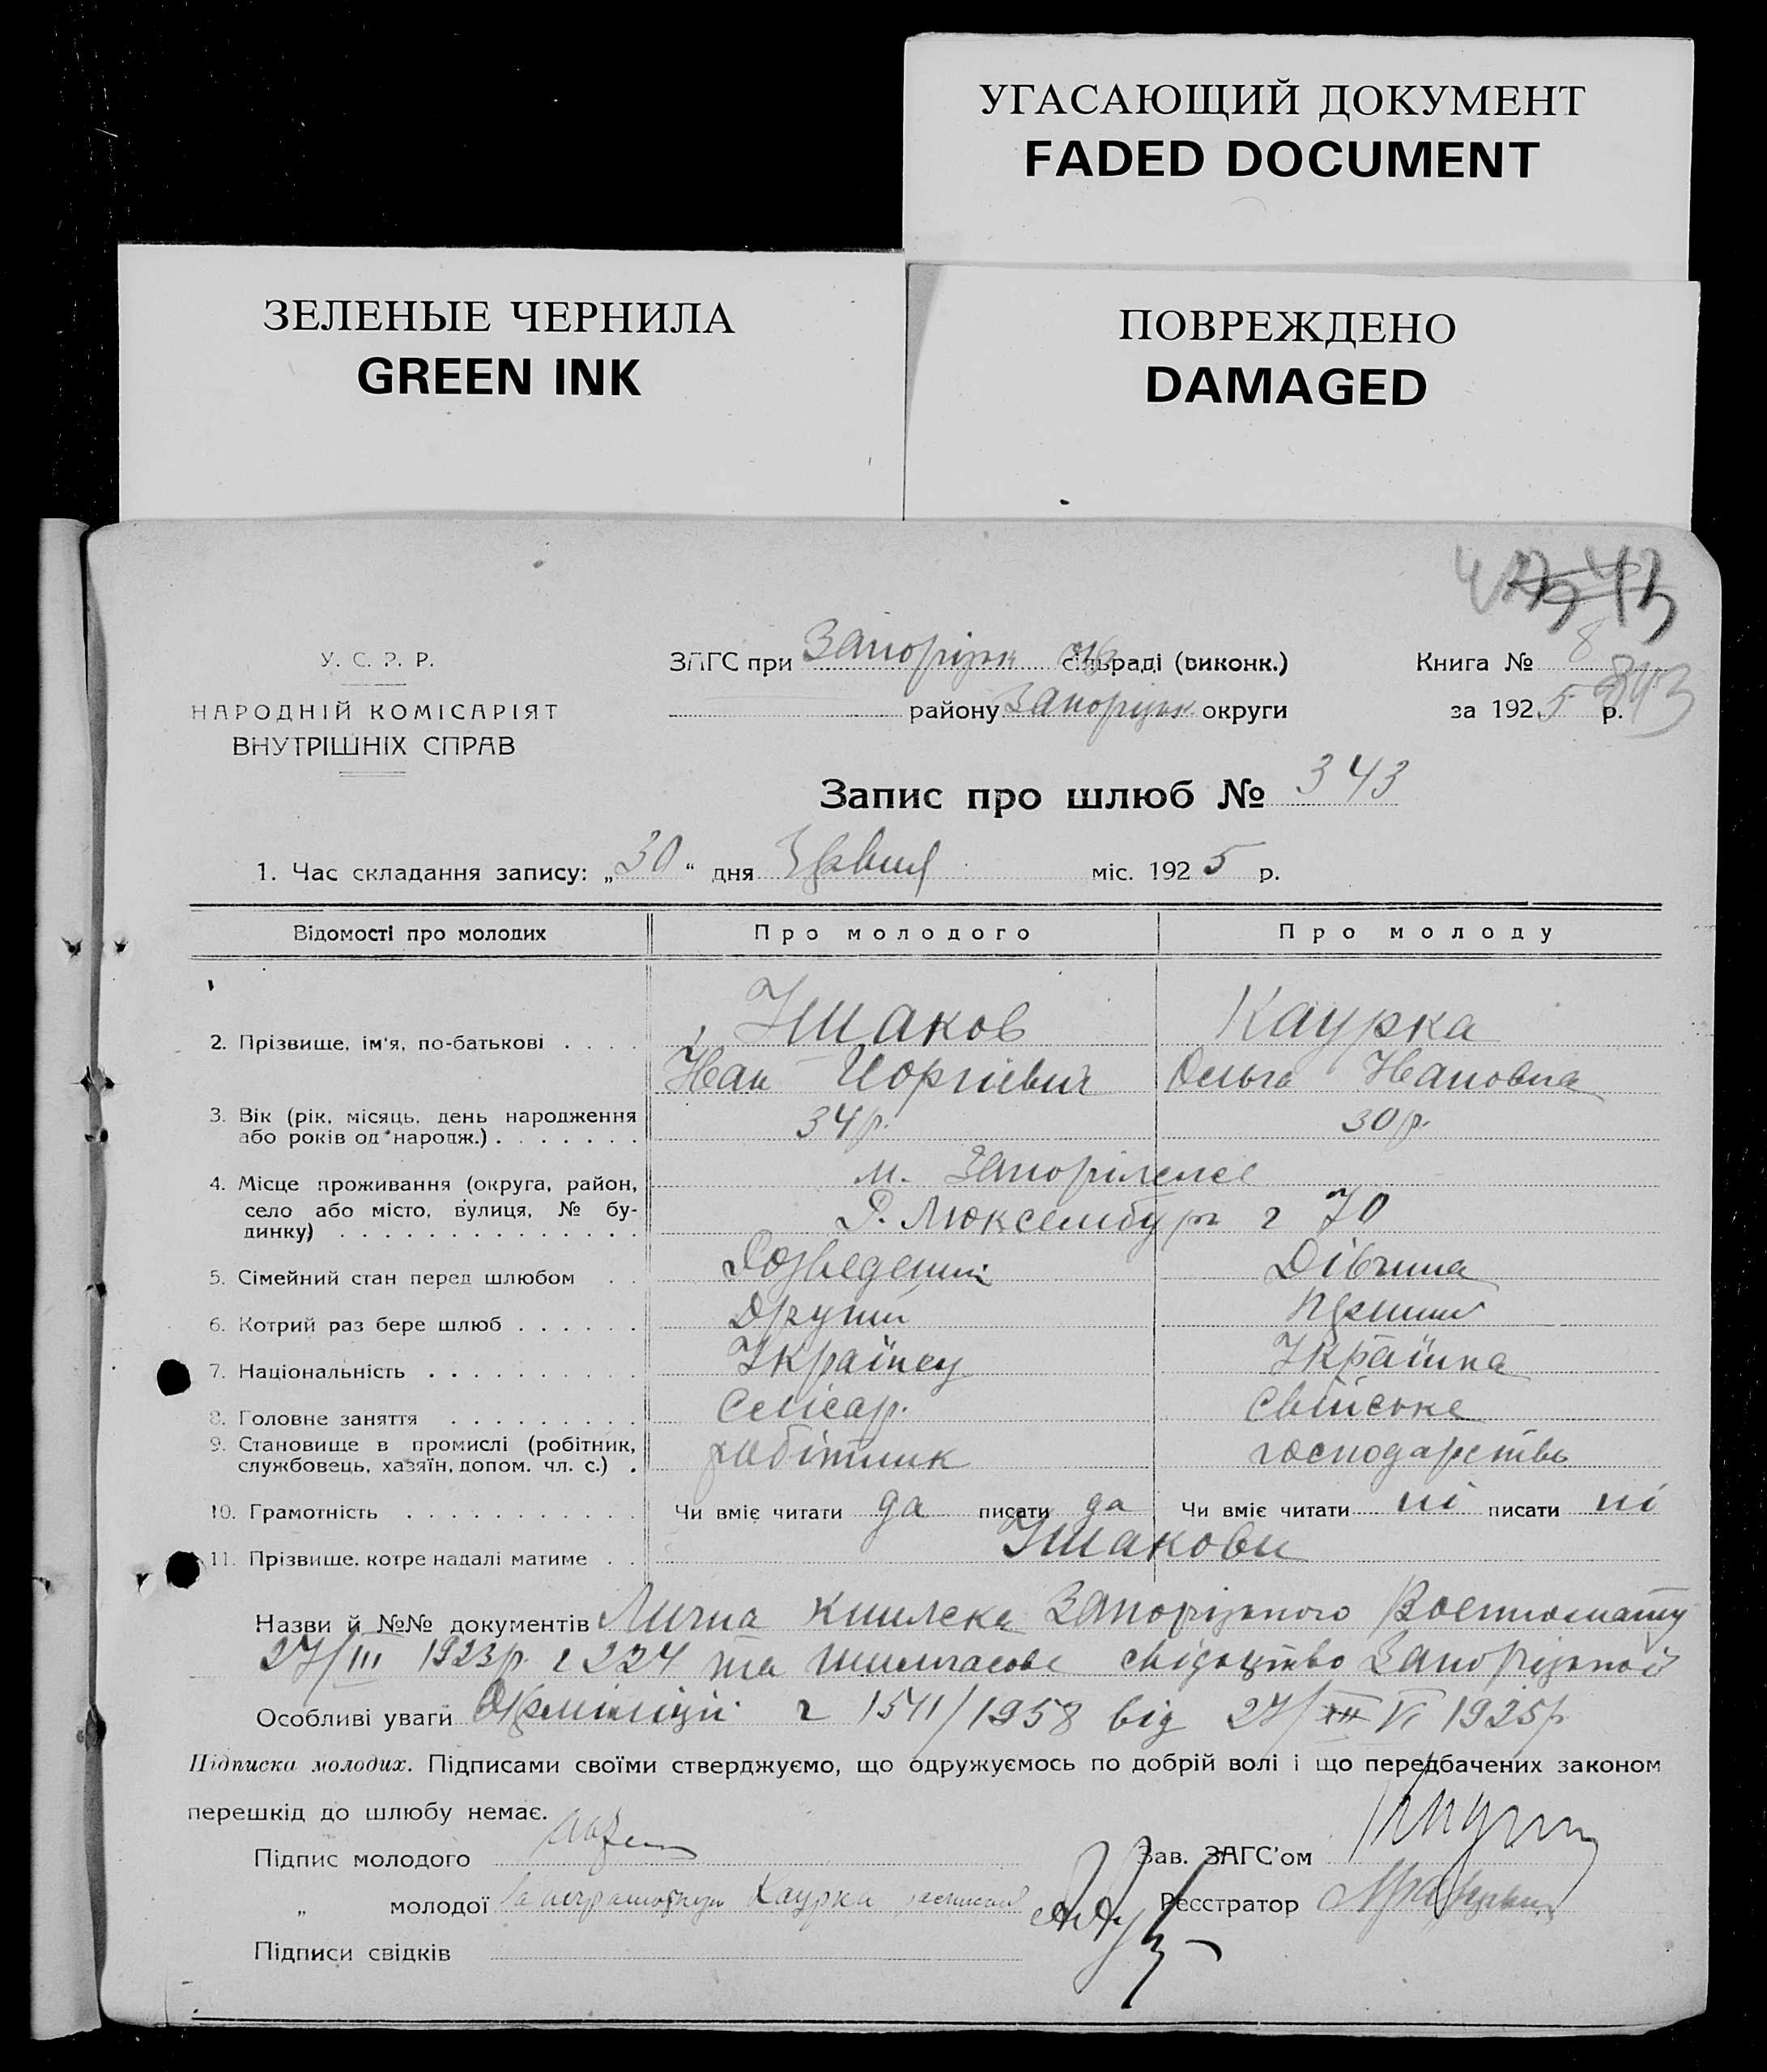 УГАСАЮЩИЙ ДОКУМЕНТ
FADED DOCUMENT
ЗЕЛЕНЫЕ ЧЕРНИЛА
GREEN INK
ПОВРЕЖДЕНО
DAMAGED
У. С. Р. Р.
НАРОДНІЙ КОМІСАРІЯТ
ВНУТРІШНІХ СПРАВ
ЗАГС при Запорізьк сільраді (виконк.)
району Запорізьк округи
Книга № 8
за 1925 р.
Запис про шлюб № 343
1. Час складання запису: „30“ дня Червня міс. 1925 р.
Відомості про молодих Про молодого Про молоду
2. Прізвище, ім'я, по-батькові . . . . Ушаков Каурка
Іван Йоргієвич Ольга Івановна
3. Вік (рік, місяць, день народження 34 р. 30 р.
або років од народж.) . . . . . . .
4. Місце проживання (округа, район, м. Запоріжжє
село або місто, вулиця, № бу- Р. Люксембург ч 70
динку) . . . . . . . . . . . . . .
5. Сімейний стан перед шлюбом . . Розведений Дівчина
6. Котрий раз бере шлюб . . . . . . Другий Перший
7. Національність . . . . . . . . . . Українец Українка
8. Головне заняття . . . . . . . . . Слісар. Свійське
9. Становище в промислі (робітник, робітник господарство
службовець, хазяїн, допом. чл. с.) .
10. Грамотність . . . . . . . . . . . Чи вміє читати да писати да Чи вміє читати ні писати ні
11. Прізвище, котре надалі матиме . . Ушакови
Назви й №№ документів Лична книжка Запорізького Военкомату
27/III 1923р. ч 224 та тимчасове свідоцтво Запорізької
Особливі уваги Окрміліції ч 1541/1958 від 27/VI 1925р
Підписка молодих. Підписами своїми стверджуємо, що одружуємось по добрій волі і що передбачених законом
перешкід до шлюбу немає.
Підпис молодого
Зав. ЗАГС'ом
„ молодої За неграмотную Каурка расписался
Реєстратор
Підписи свідків